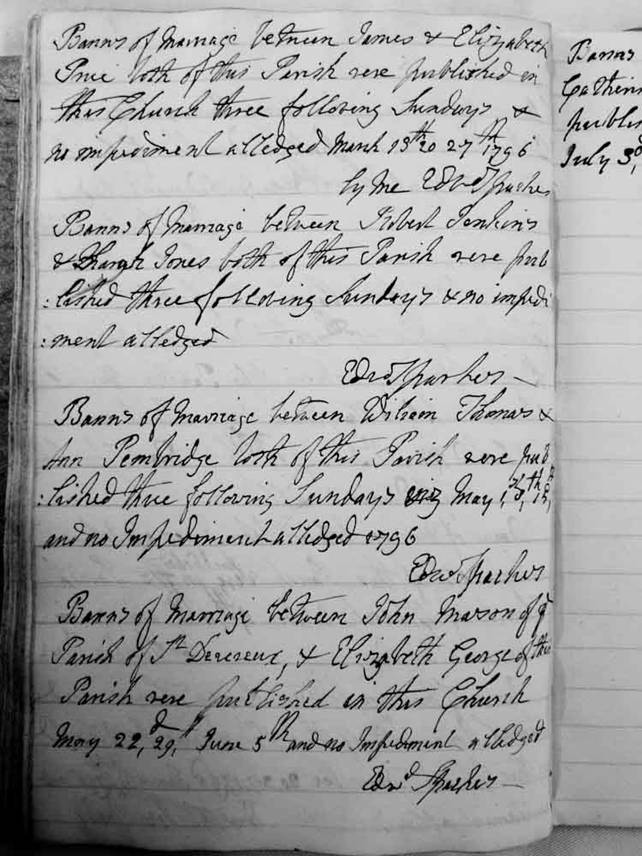 Banns of Marriage between James & Elizabeth
Price both of this Parish were published in
this Church three following Sundays &
no impediment alledged March 13th 20 27th 1796
by me Edwd Sparkes
Banns of Marriage between Robert Jenkins
& Sarah Jones both of this Parish were pub
:lished three following Sundays & no impedi
:ment alledged
Edwd Sparkes
Banns of Marriage between William Thomas &
Ann Pembridge both of this Parish were pub
:lished three following Sundays viz May 1st, 8th, 15,
and no Impediment alledged 1796
Edwd Sparkes
Banns of Marriage between John Mason of ye
Parish of St Devereux, & Elizabeth George of this
Parish were published in this Church
May 22,d 29,th June 5th and no Impediment alledged
Edwd Sparkes
Banns
Catherin
publis
July 3,d